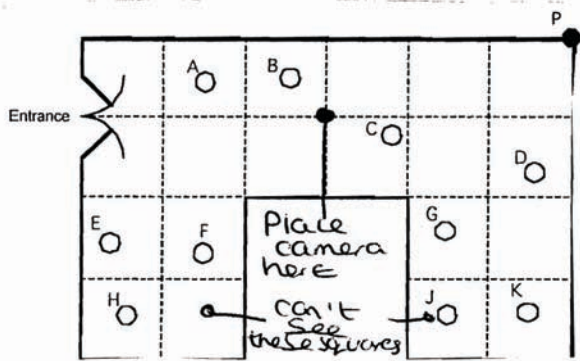 P
A
B
Entrance
C
D
E
F
G
Place
camera
here
H
J
K
can't
see
these squares